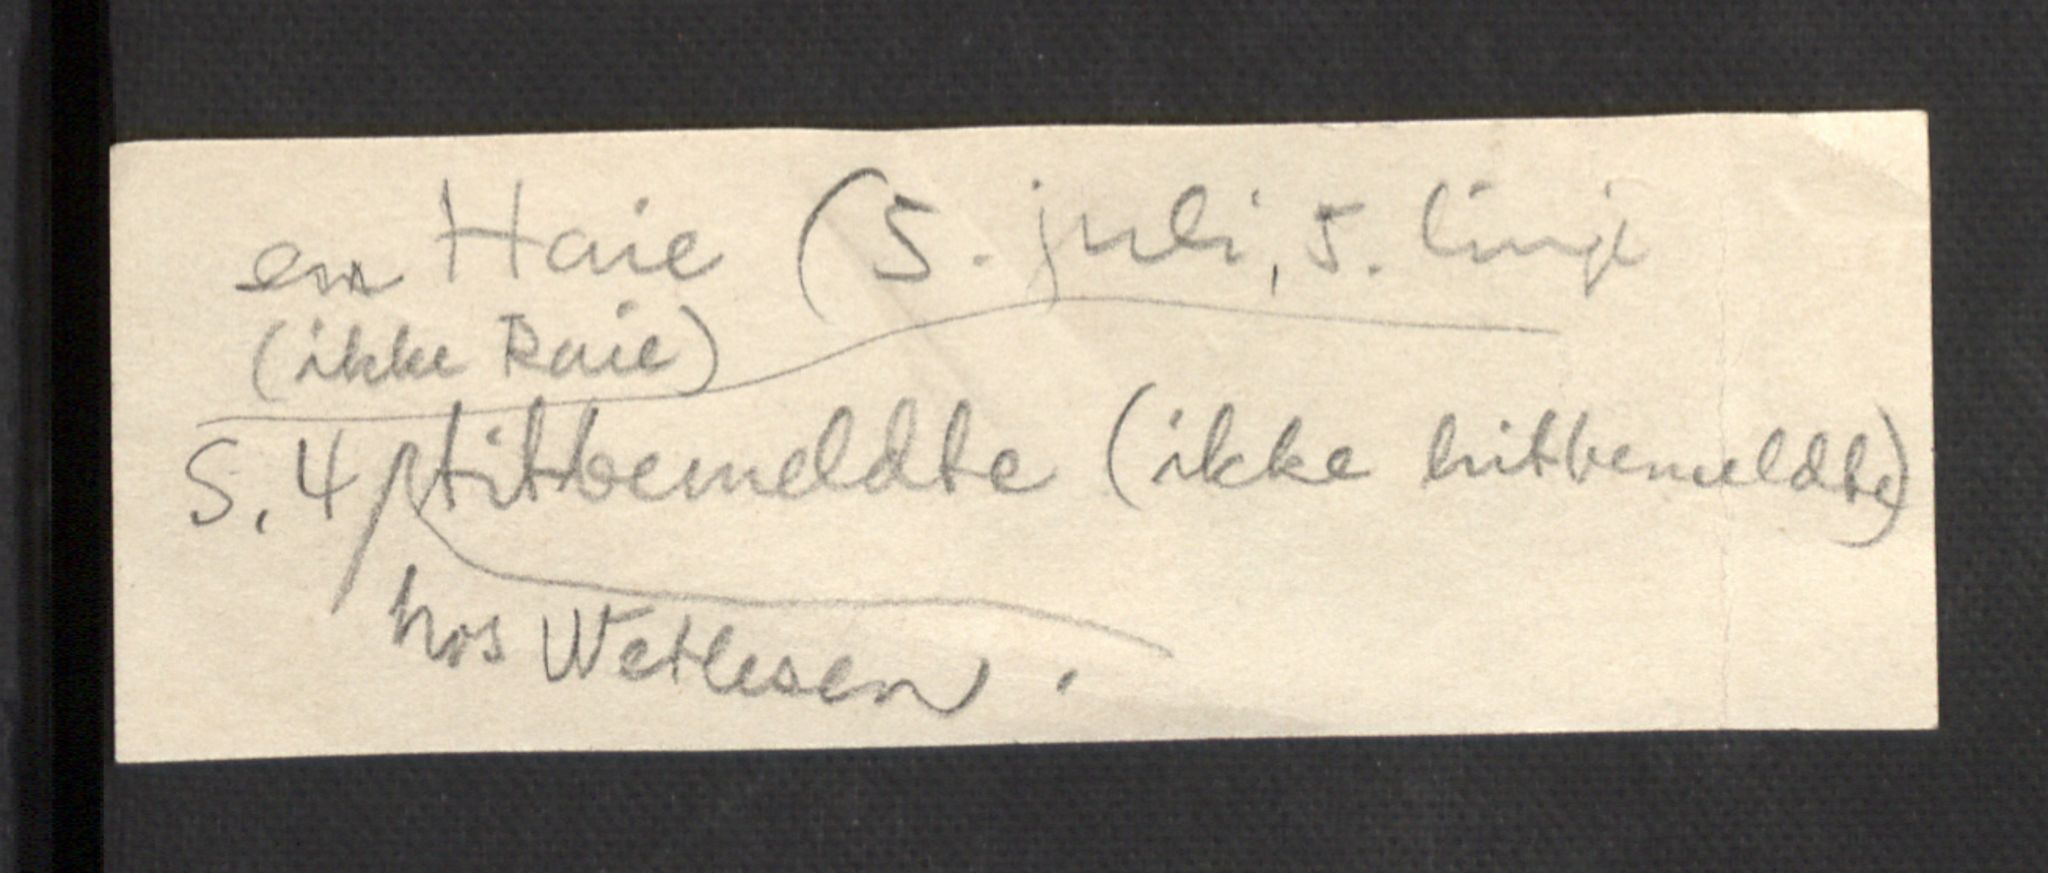 en Haie (5. juli, 5. linje
(ikke Raie)
S. 4 titbemeldte (ikke hitbemeldte)
hos Wetlesen.